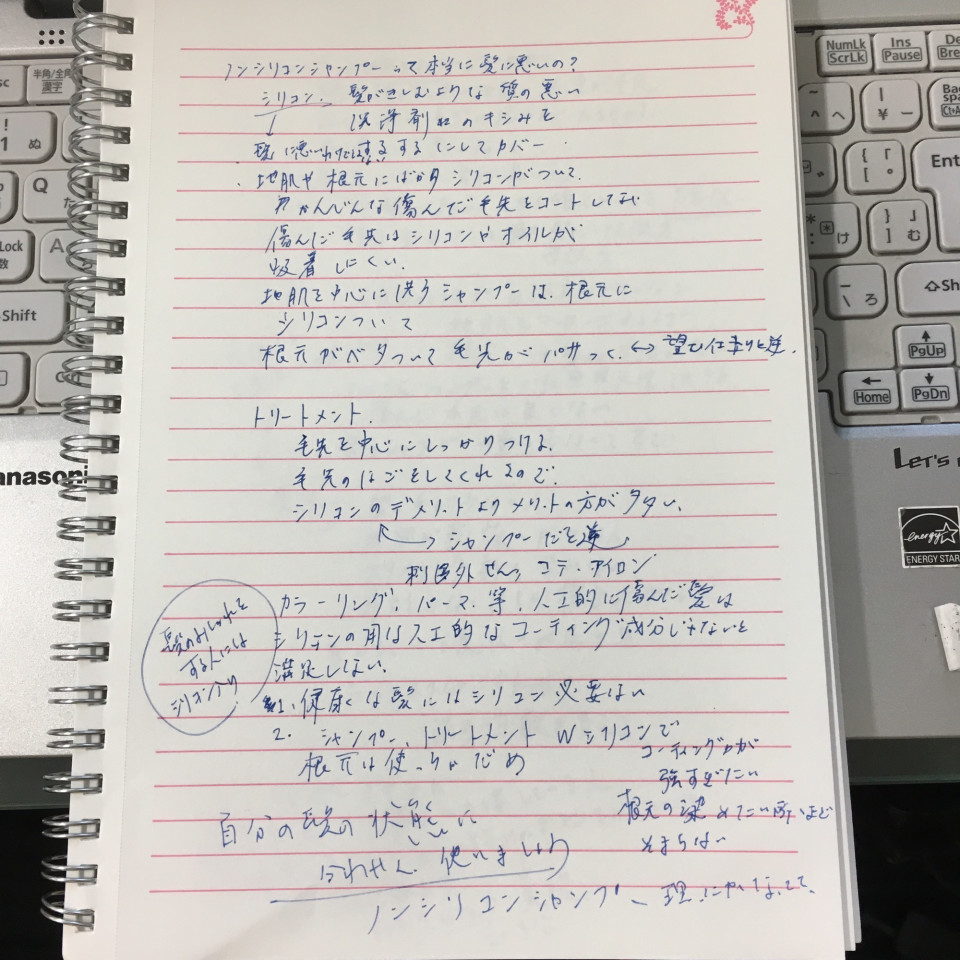 ノンシリコンシャンプーって本当に髪に悪いの?
シリコン 髪がきしむような質の悪い
↓ 洗浄剤 のキシみを
髪に悪いわけではない するするにしてカバー
・地肌や根元にばかりシリコンがついて、
かんじんな傷んだ毛先をコートしてない
傷んだ毛先はシリコンやオイルが
吸着しにくい.
地肌を中心に洗うシャンプーは、根元に
シリコンついて
根元がベタついて毛先がパサつく. ↔ 望む仕上りと逆.
トリートメント.
毛先を中心にしっかりつける.
毛先のほごをしてくれるので.
シリコンのデメリットよりメリットの方が多い、
シャンプーだと逆
紫外せん、コテ・アイロン
カラーリング、パーマ、等、人工的に傷んだ髪は
シリコンの 人工的なコーティング成分じゃないと
満足しない.
髪のおしゃれを
する人には
シリコン入り
1、健康な髪にはシリコン必要ない
2. シャンプー、トリートメント Wシリコンで
根元は使っちゃだめ
コーティング力が
強すぎたい
根元の染めたい所ほど
そまらない
自分の髪の状態に
合わせ 使いましょう
ノンシリコンシャンプー
半角/全角
漢字
!
1 ぬ
Q
た
A
Lock
数
Shift
anasoni
NumLk
ScrLk
Ins
Pause
De
Bre
Bac
spa
Ctrl+A
Ent
け
む
ろ
⇧Sh
PgUp
Home
PgDn
LET'S
energy
ENERGY STAR